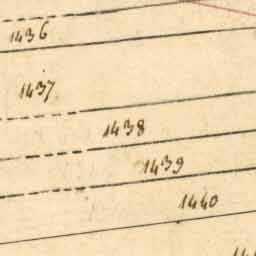 1436
1437
1438
1439
1440